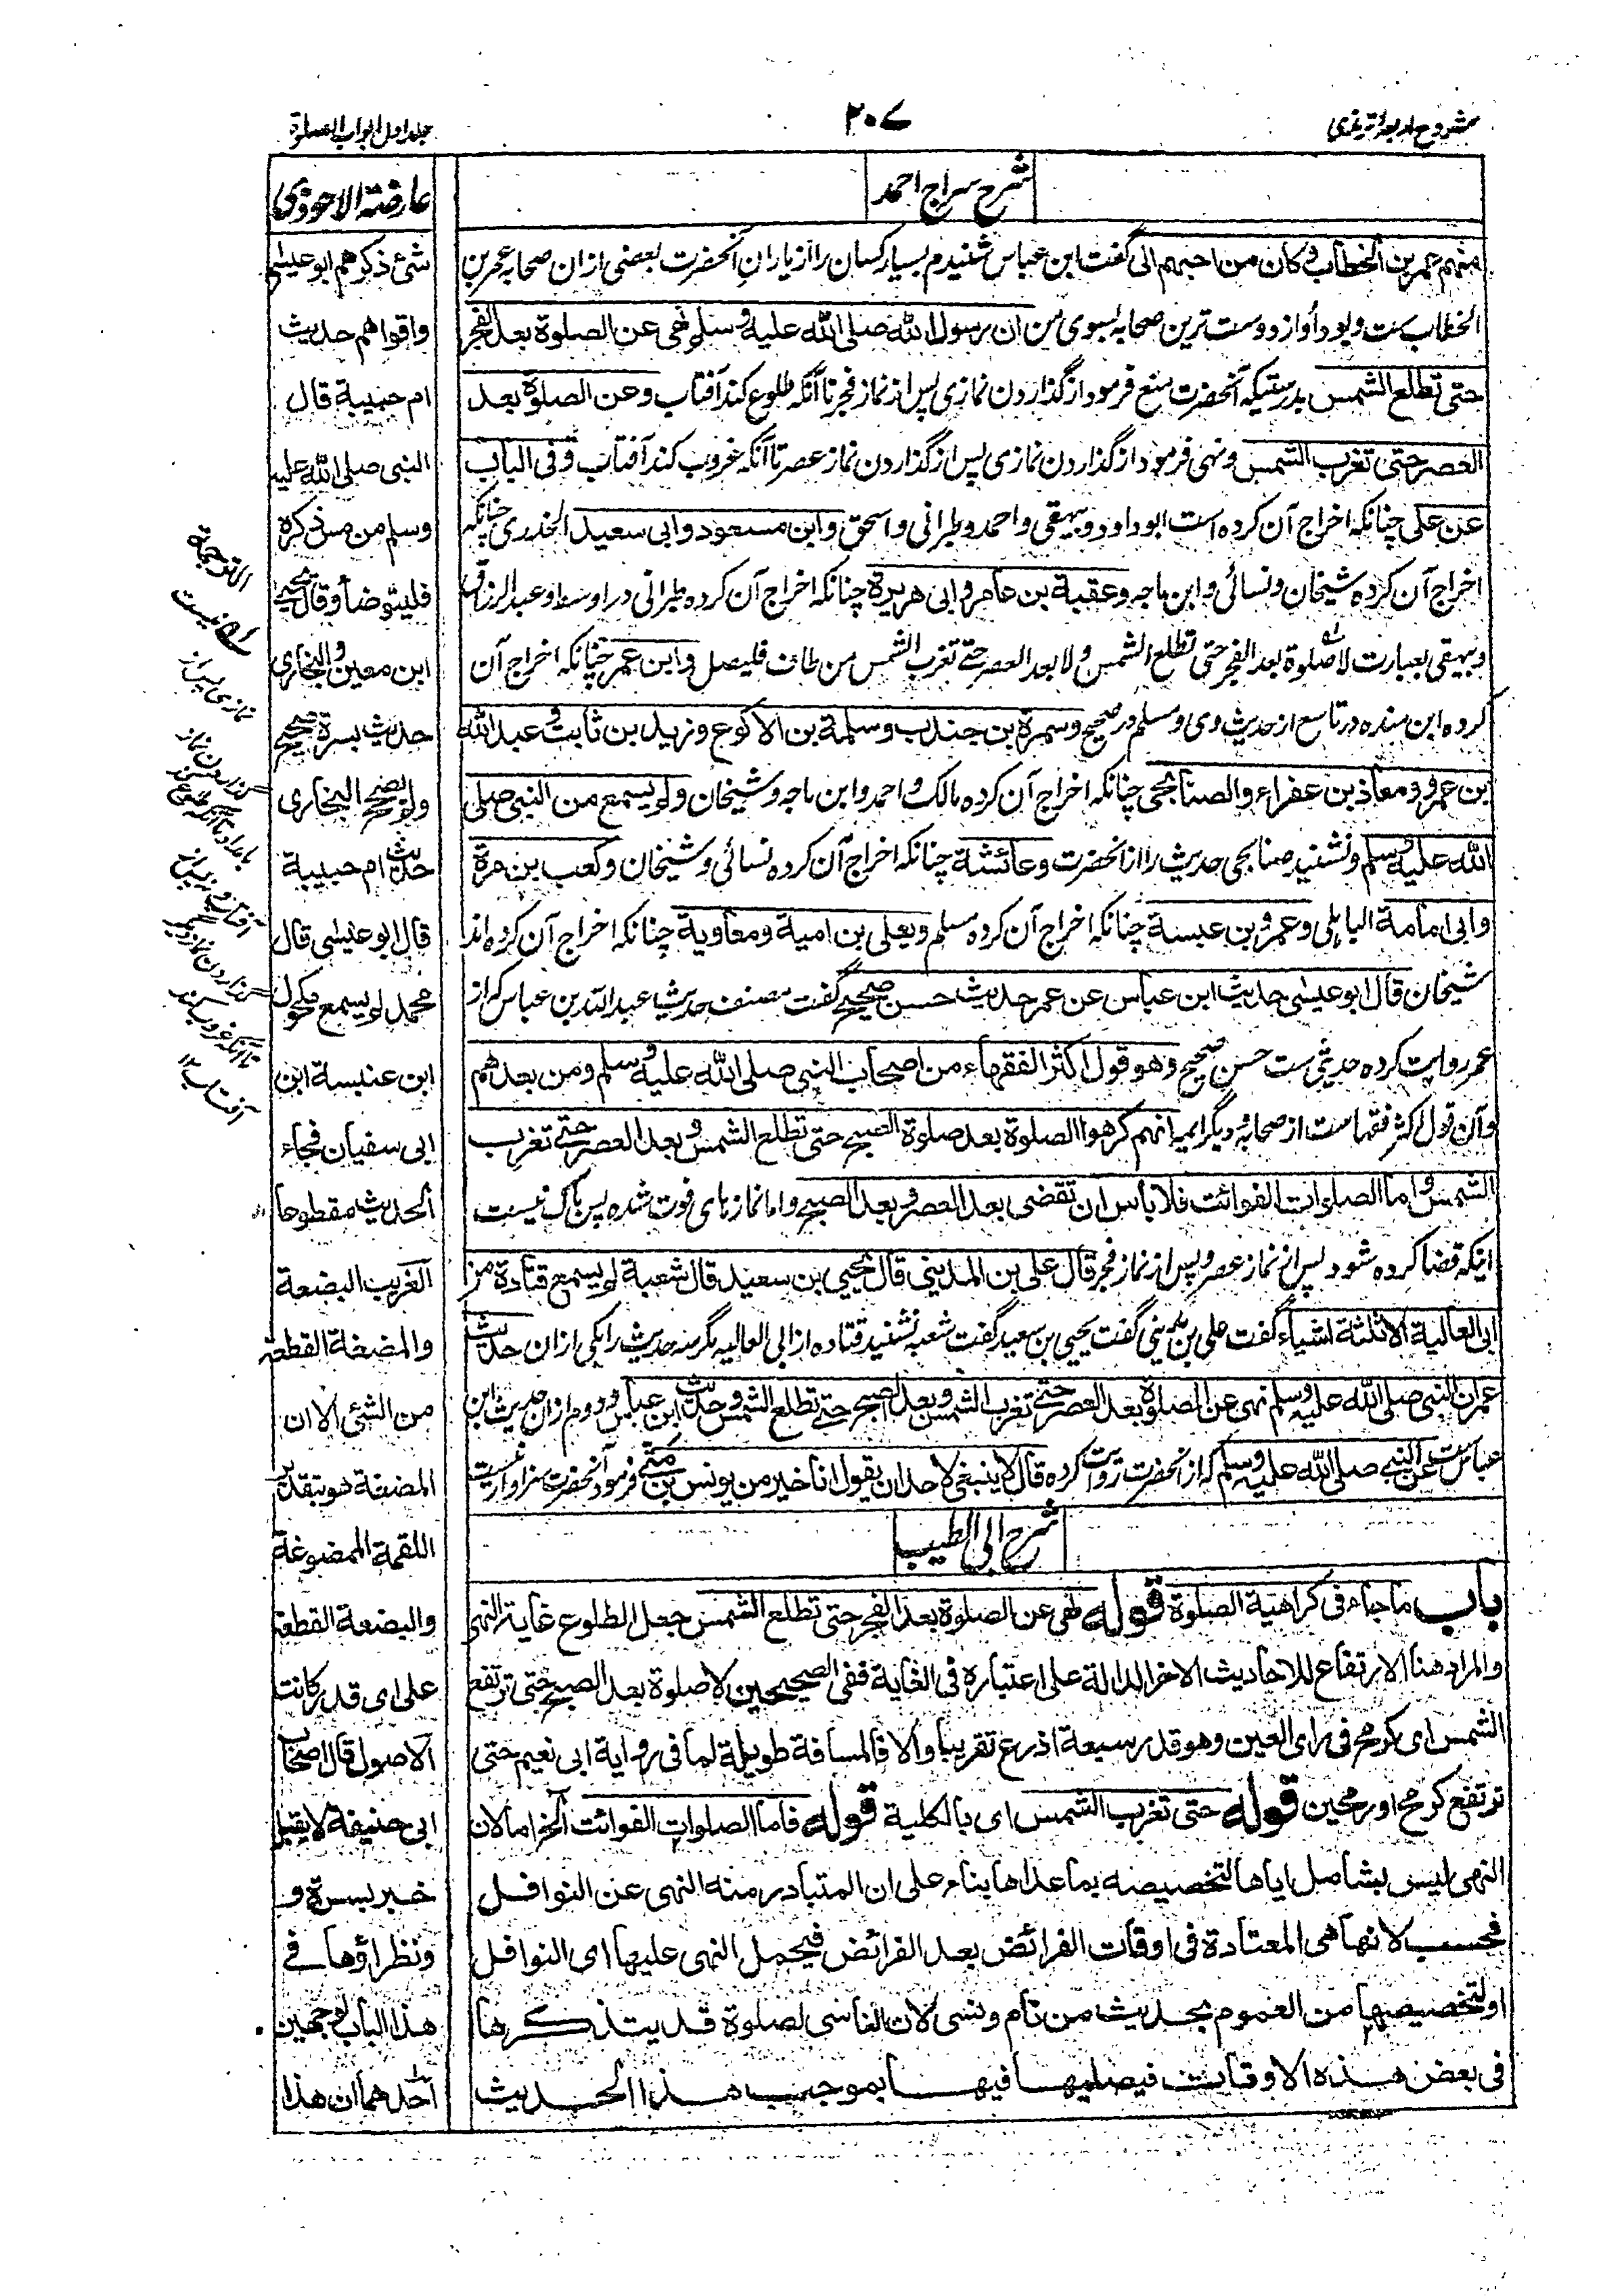 شروح اربعۂ ترمذی
۲۰۷
جلد اول ابواب الصلوة
شرح سراج احمد
منهم عمر بن الخطاب وکان من احبهم الی گفت ابن عباس شنیدم بسیار کسان را از یاران آنحضرت بعضی از ان صحابه عمر بن
الخطاب ست و بود او از دوست ترین صحابه بسوی من ان رسول الله صلی الله علیه وسلم نهی عن الصلوة بعد الفجر
حتی تطلع الشمس بدرستیکه آنحضرت منع فرمود از گذاردن نمازی پس از نماز فجر تا آنکه طلوع کند آفتاب وعن الصلوة بعد
العصر حتی تغرب الشمس ونهی فرمود از گذاردن نمازی پس از گذاردن نماز عصر تا آنکه غروب کند آفتاب وفی الباب
عن علی چنانکه اخراج آن کرده است ابو داود و بیهقی واحمد وطبرانی واسحق وابن مسعود وابی سعید الخدری چنانکه
اخراج آن کرده شیخان ونسائی وابن ماجه وعقبة بن عامر وابی هریرة چنانکه اخراج آن کرده طبرانی در اوسط وعبد الرزاق
وبیهقی بعبارت لا صلوة بعد الفجر حتی تطلع الشمس ولا بعد العصر حتی تغرب الشمس من طاف فلیصل وابن عمر چنانکه اخراج آن
کرده ابن منده در تاسع از حدیث وی ومسلم در صحیح وسمرة بن جندب وسلمة بن الاکوع وزید بن ثابت وعبد الله
بن عمرو ومعاذ بن عفراء والصنابحی چنانکه اخراج آن کرده مالک واحمد وابن ماجه وشیخان ولم یسمع من النبی صلی
الله علیه وسلم ونشنید صنابحی حدیث را از آنحضرت وعائشة چنانکه اخراج آن کرده نسائی وشیخان وکعب بن مرة
وابی امامة الباهلی وعمرو بن عبسة چنانکه اخراج آن کرده مسلم ویعلی بن امیة ومعاویة چنانکه اخراج آن کرده اند
شیخان قال ابو عیسی حدیث ابن عباس عن عمر حدیث حسن صحیح گفت مصنف حدیث عبد الله بن عباس که از
عمر روایت کرده حدیثی ست حسن صحیح وهو قول اکثر الفقهاء من اصحاب النبی صلی الله علیه وسلم ومن بعدهم
وآن قول اکثر فقها ست از صحابه ودیگر ایمه انهم کرهوا الصلوة بعد صلوة الصبح حتی تطلع الشمس وبعد العصر حتی تغرب
الشمس واما الصلوات الفوائت فلا بأس ان تقضی بعد العصر وبعد الصبح واما نمازهای فوت شده پس باک نیست
اینکه قضا کرده شود پس از نماز عصر وپس از نماز فجر قال علی بن المدینی قال یحیی بن سعید قال شعبة لم یسمع قتادة من
ابی العالیة الا ثلثة اشیاء گفت علی بن مدینی گفت یحیی بن سعید گفت شعبه نشنید قتاده از ابی العالیه مگر سه حدیث را یکی از ان حدیث
عمر ان النبی صلی الله علیه وسلم نهی عن الصلوة بعد العصر حتی تغرب الشمس وبعد الصبح حتی تطلع الشمس وحدیث ابن عباس ودوم از ان حدیث ابن
عباس ست عن النبی صلی الله علیه وسلم که از آنحضرت روایت کرده قال لا ینبغی لاحد ان یقول انا خیر من یونس بن متی فرمود آنحضرت سزاوار نیست
شرح ابی الطیب
باب ما جاء فی کراهیة الصلوة قوله نهی عن الصلوة بعد الفجر حتی تطلع الشمس جعل الطلوع غایة النهی
والمراد هنا الارتفاع للاحادیث الاخر الدالة علی اعتباره فی الغایة ففی الصحیحین لا صلوة بعد الصبح حتی ترتفع
الشمس ای کرمح فی رای العین وهو قدر سبعة اذرع تقریبا والا فالمسافة طویلة لما فی روایة ابی نعیم حتی
ترتفع کرمح او رمحین قوله حتی تغرب الشمس ای بالکلیة قوله فاما الصلوات الفوائت آلخ اما لان
النهی لیس بشامل ایاها لتخصیصه بما عداها بناء علی ان المتبادر منه النهی عن النوافل
فحسب لانها هی المعتادة فی اوقات الفرائض بعد الفرائض فیحمل النهی علیها ای النوافل
او لتخصیصها من العموم بحدیث من نام ونسی لان الناسی لصلوة قد یتذکرها
فی بعض هذه الاوقات فیصلیها فیها بموجب هذا الحدیث
عارضة الاحوذی
شئ ذکرهم ابو عیسی
واقواهم حدیث
ام حبیبة قال
النبی صلی الله علیه
وسلم من مس ذکره
فلیتوضأ وقال یحیی
ابن معین والبخاری
حدیث بسرة صحیح
ولم یصحح البخاری
حدیث ام حبیبة
قال ابو عیسی قال
محمد لم یسمع مکحول
ابن عنبسة ابن
ابی سفیان فجاء
الحدیث مقطوعا
الغریب البضعة
والمضغة القطعة
من الشئ الا ان
المضغة هو بتقدیر
اللقمة الممضوغة
والبضعة القطعة
علی ای قدر کانت
الاصول قال اصحاب
ابی حنیفة لا یقبل
خبر بسرة و
ونظراؤها فی
هذا الباب لوجهین
احدهما ان هذا
الترجمة
له نیست
نمازی پس از
گزاردن نماز
بامداد تا آنکه طلوع کند
آفتاب ونه پس از
گزاردن نماز دیگر
تا آنکه غروب کند
آفتاب ۱۲